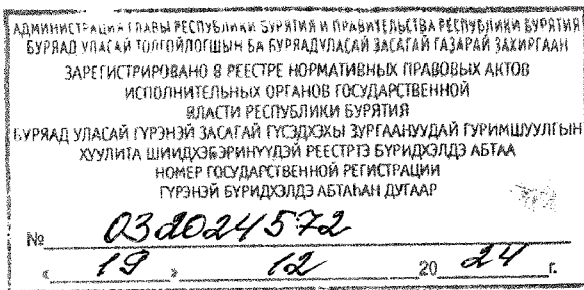 АДМИНИСТРАЦИЯ ГЛАВЫ РЕСПУБЛИКИ БУРЯТИЯ И ПРАВИТЕЛЬСТВА РЕСПУБЛИКИ БУРЯТИЯ
БУРЯАД УЛАСАЙ ТОЛГОЙЛОГШЫН БА БУРЯАД УЛАСАЙ ЗАСАГАЙ ГАЗАРАЙ ЗАХИРГААН
ЗАРЕГИСТРИРОВАНО В РЕЕСТРЕ НОРМАТИВНЫХ ПРАВОВЫХ АКТОВ
ИСПОЛНИТЕЛЬНЫХ ОРГАНОВ ГОСУДАРСТВЕННОЙ
ВЛАСТИ РЕСПУБЛИКИ БУРЯТИЯ
БУРЯАД УЛАСАЙ ГҮРЭНЭЙ ЗАСАГАЙ ГҮСЭДХЭХЫ ЗУРГААНУУДАЙ ГУРИМШУУЛГЫН
ХУУЛИТА ШИИДХЭБЭРИНҮҮДЭЙ РЕЕСТРТЭ БҮРИДХЭЛДЭ АБТАА
НОМЕР ГОСУДАРСТВЕННОЙ РЕГИСТРАЦИИ
ГҮРЭНЭЙ БҮРИДХЭЛДЭ АБТАҺАН ДУГААР
№ 032024572
« 19 » 12 20 24 г.